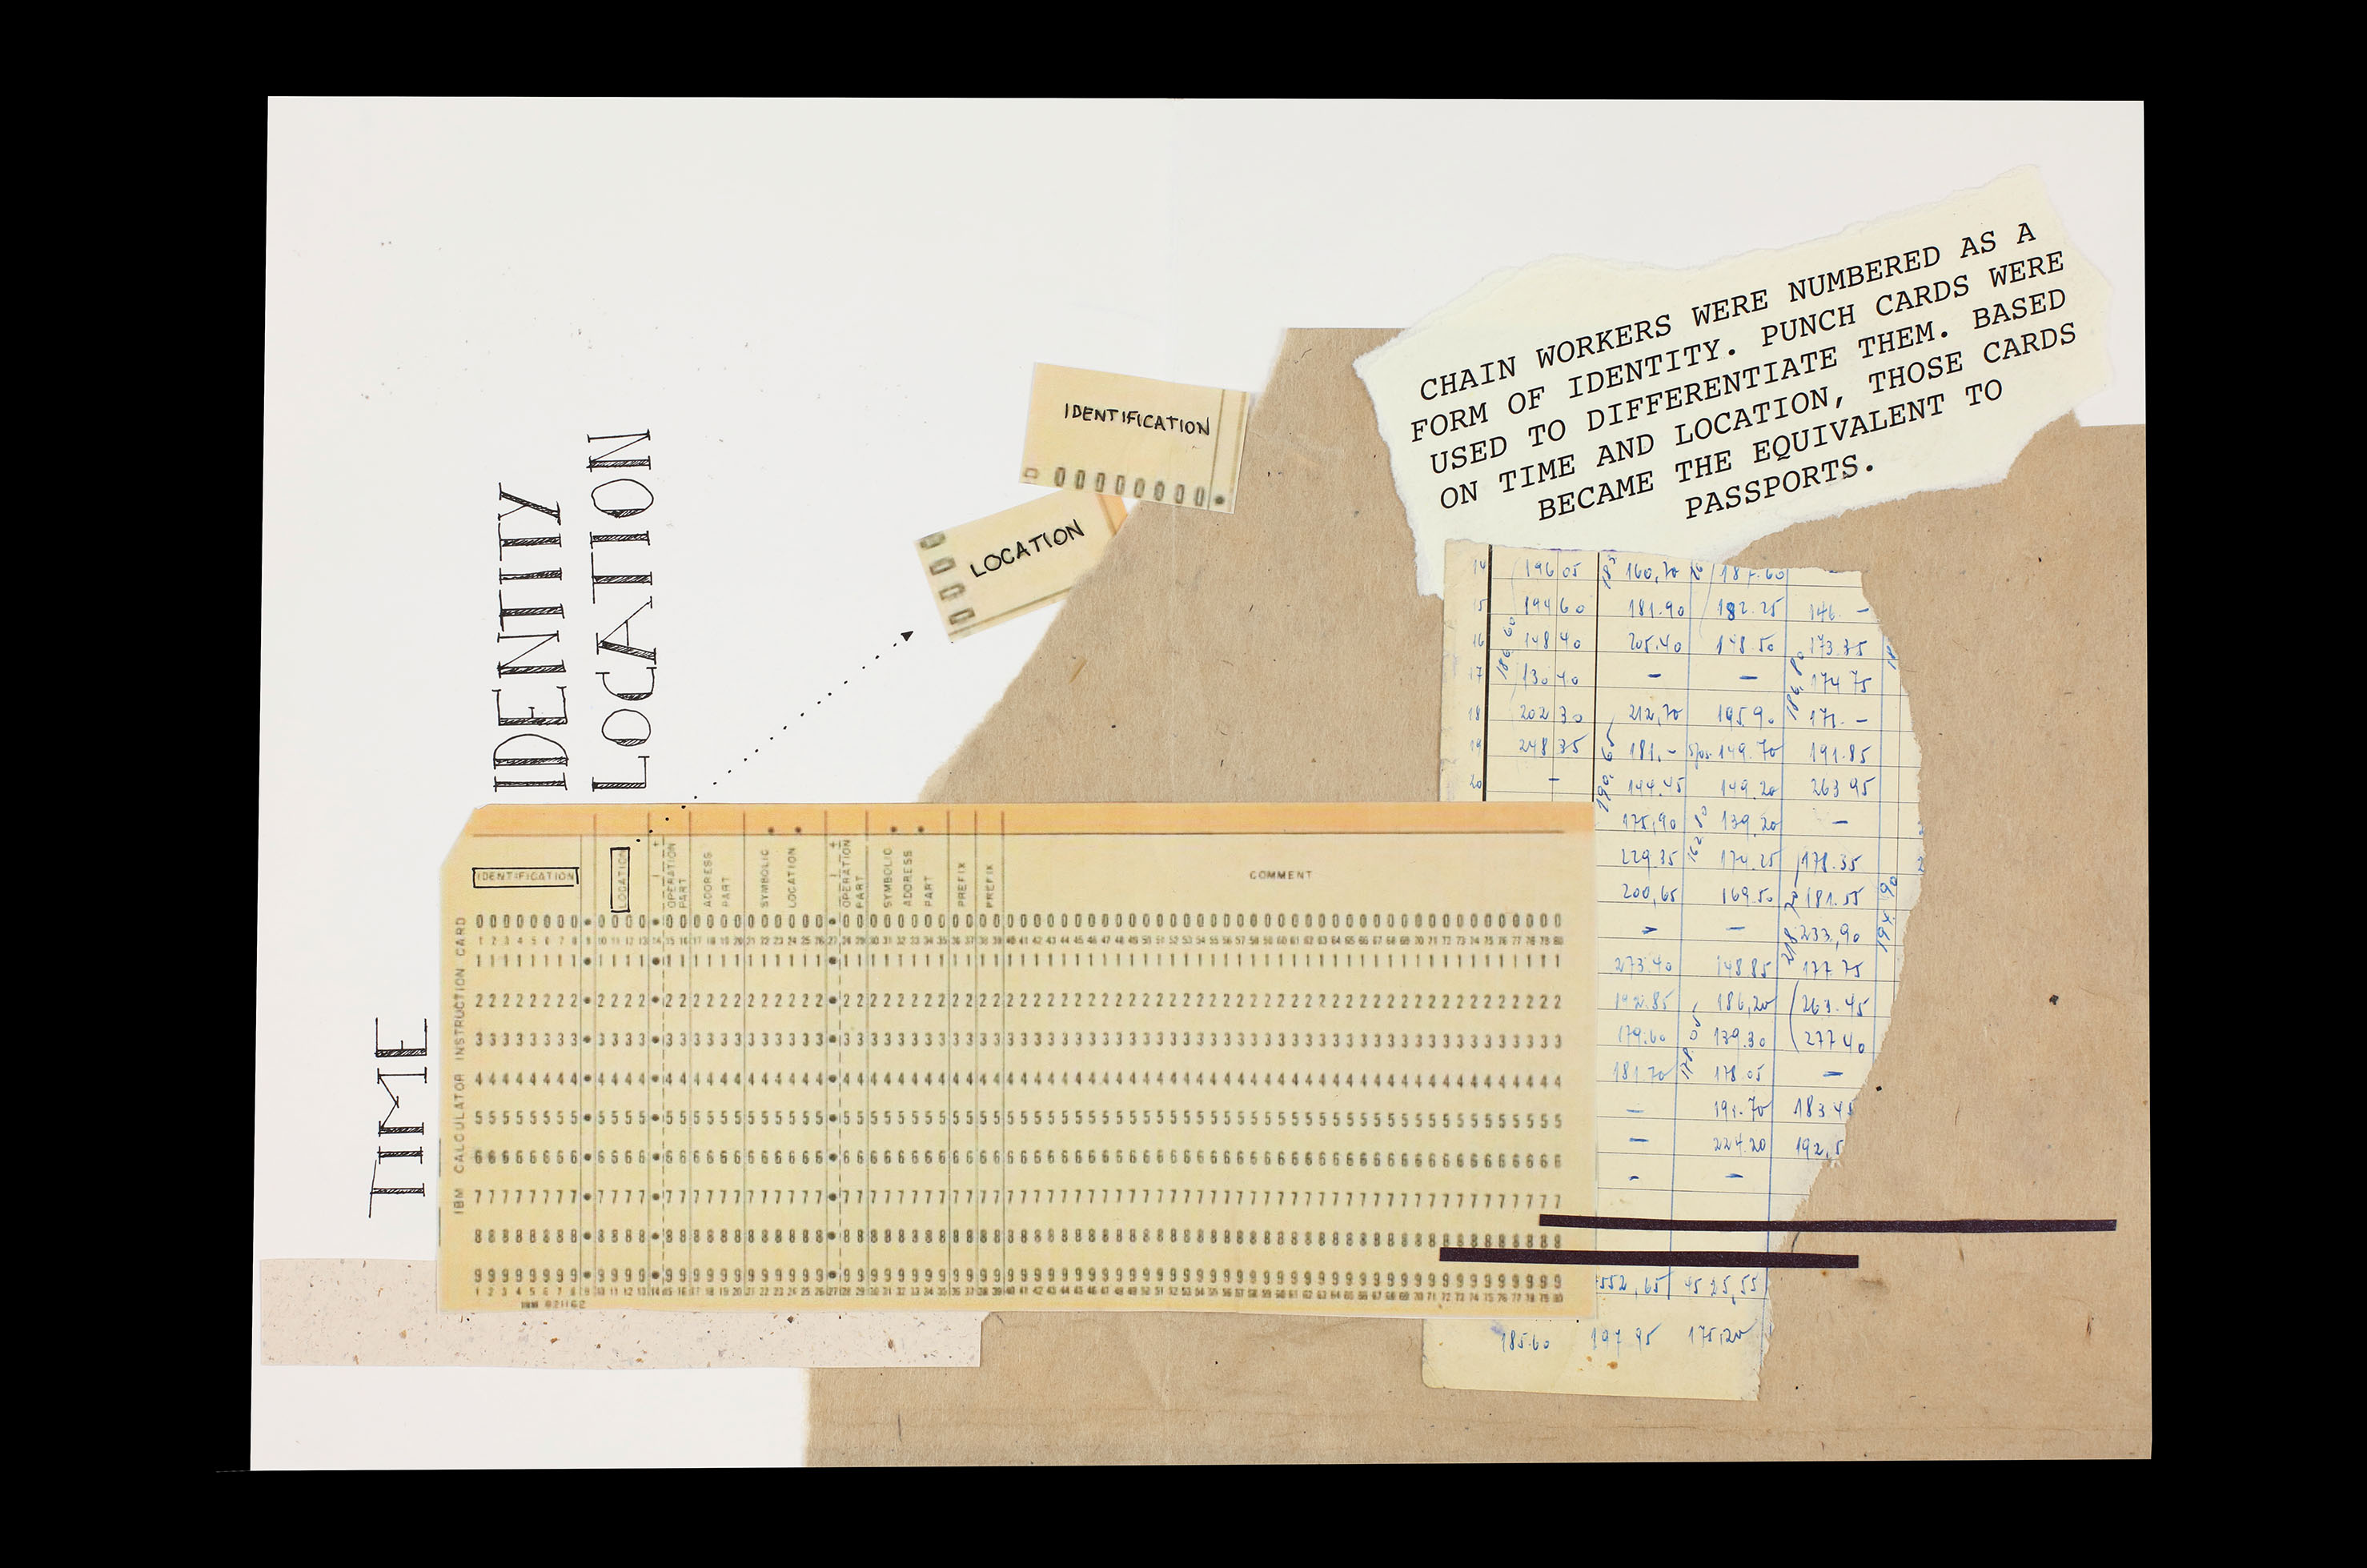 CHAIN WORKERS WERE NUMBERED AS A
FORM OF IDENTITY. PUNCH CARDS WERE
USED TO DIFFERENTIATE THEM. BASED
ON TIME AND LOCATION, THOSE CARDS
BECAME THE EQUIVALENT TO
PASSPORTS.
IDENTIFICATION
LOCATION
IDENTITY
LOCATION
TIME
IBM CALCULATOR INSTRUCTION CARD
IDENTIFICATION
LOCATION
OPERATION
PART
ADDRESS
PART
SYMBOLIC
LOCATION
OPERATION
PART
SYMBOLIC
ADDRESS
PART
PREFIX
PREFIX
COMMENT
14 196 05 160,70
15 194 60 181.90 182.25 146. -
16 148 40 205.40 148.50 173.35
17 130 40 - - 174 75
18 202 30 212,70 195 90 171. -
19 248 35 181.- 149.70 191.85
20 - 144.45 149.20 263 95
175,90 139.20 -
229.35 174.25 178.35
200,65 169.50 181.55
- 233,90
273.40 148.85 177.75
192.85 186,20 263.45
179.60 139.30 277 40
181.70 178.05 -
- 191.70 183 45
- 224.20 192,5
- -
552,65 4525,55
185.60 197 95 175,20